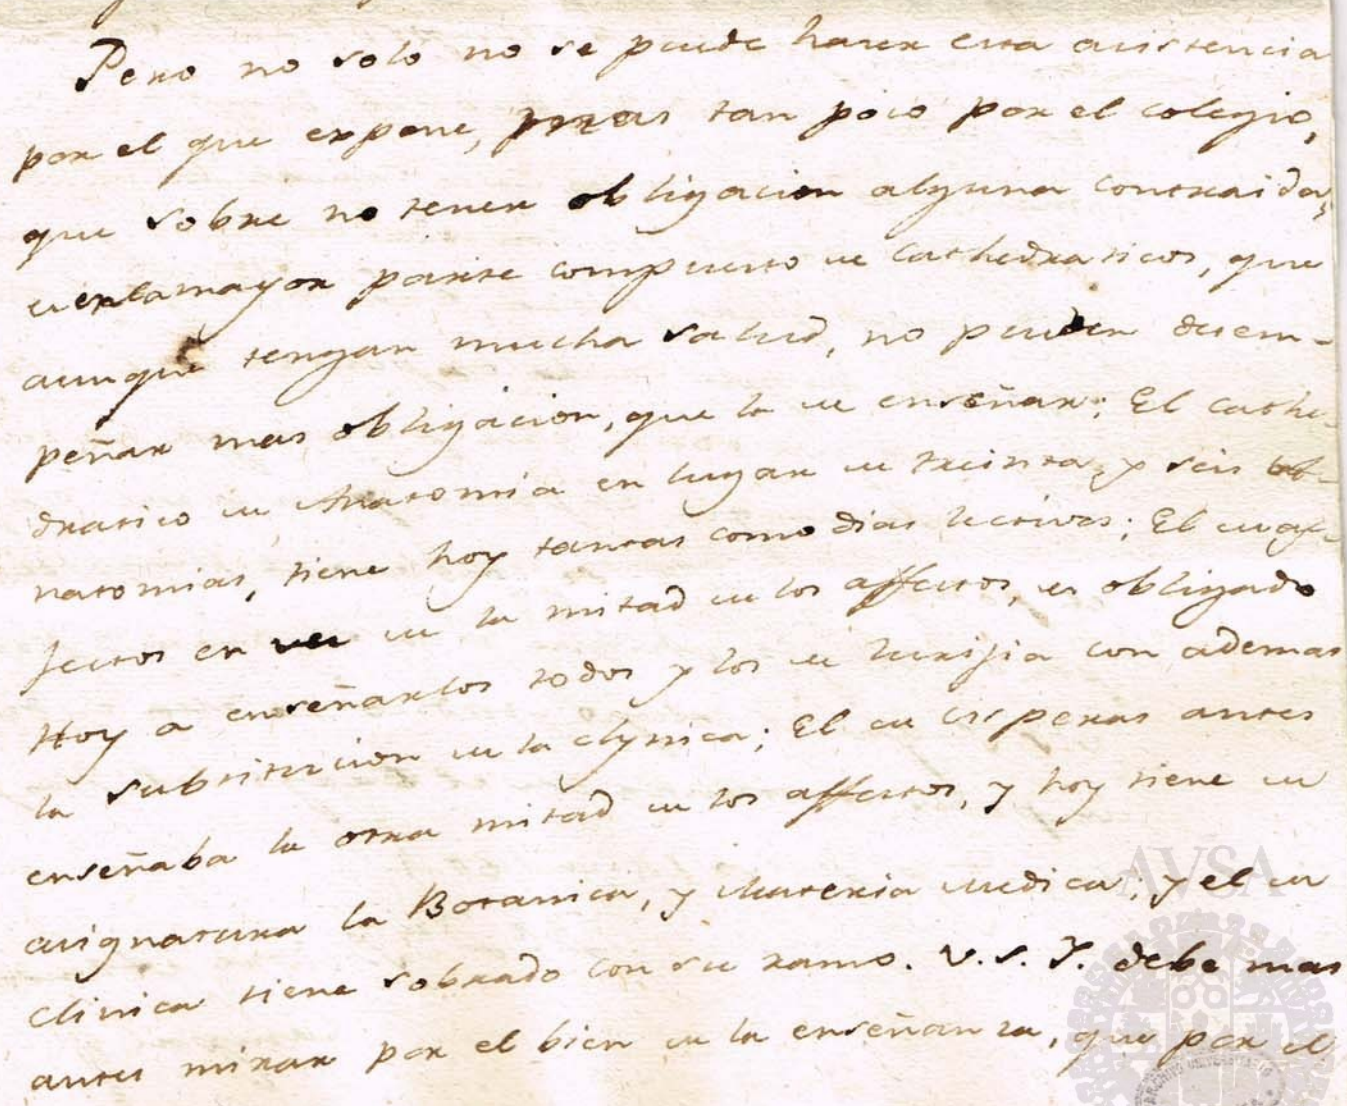 Pero no solo no se puede hacer esta asistencia
por el que expone, mas tan poco por el colegio,
que sobre no tener obligacion alguna contraida,
es en la mayor parte compuesto de Cathedraticos, que
aunque tengan mucha salud, no pueden desem-
peñar mas obligacion, que la de enseñar: El cathe-
dratico de Anatomia en lugar de treinta, y seis
natomias, tiene hoy tantas como dias lectivos; El de af-
fectos en vez de la mitad de los affectos, es obligado
Hoy a enseñarlos todos y los de zirujia con ademas
la substitucion de la clynica; El de visperas antes
enseñaba la otra mitad de los affectos, y hoy tiene de
asignatura la Botanica, y Materia medica; y el de
clinica tiene sobrado con su ramo. V.S.Y. debe mas
antes mirar por el bien de la enseñanza, que por el
AVSA
ARCHIVO UNIVERSITARIO